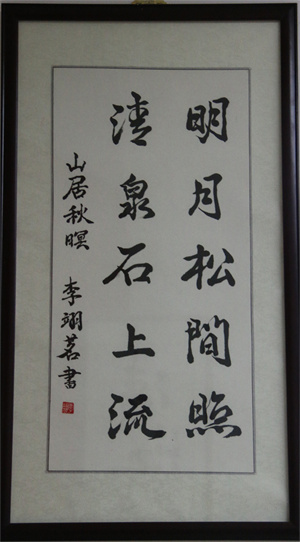 明月松間照
清泉石上流
山居秋暝 李翊茗書